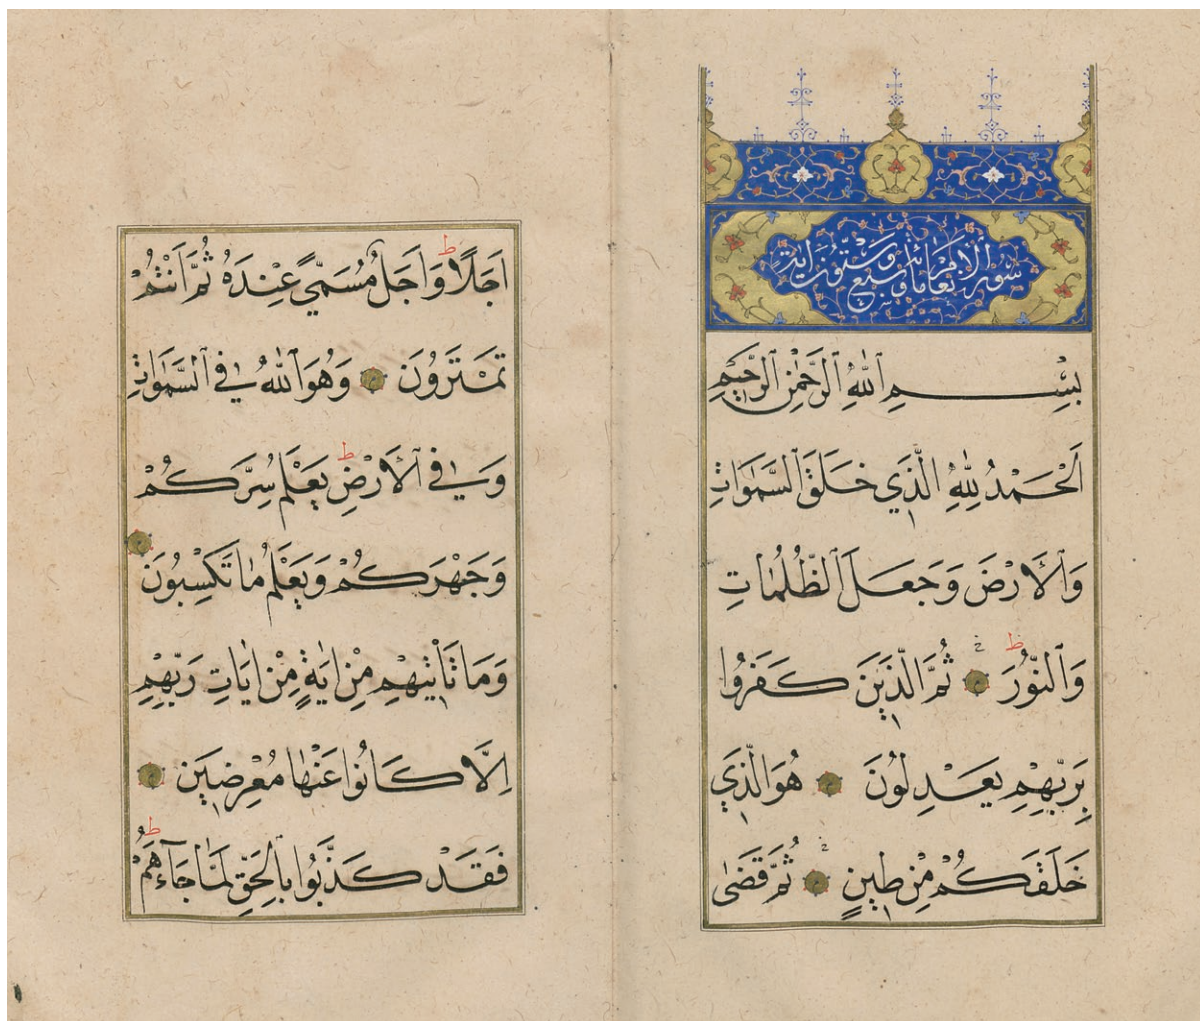 سورة الانعام مائة وسبع وستون اية
بِسْمِ ٱللّٰهِ ٱلرَّحْمٰنِ ٱلرَّحِيمِ
اَلْحَمْدُ لِلّٰهِ الَّذِي خَلَقَ ٱلسَّمٰوَاتِ
وَٱلْاَرْضَ وَجَعَلَ ٱلظُّلُمَاتِ
وَٱلنُّورَ ط م ثُمَّ الَّذِينَ كَفَرُوا
بِرَبِّهِمْ يَعْدِلُونَ م هُوَ الَّذِي
خَلَقَكُمْ مِنْ طِينٍ م ثُمَّ قَضٰى
اَجَلًا ط وَاَجَلٌ مُسَمًّى عِنْدَهُ ثُمَّ اَنْتُمْ
تَمْتَرُونَ م وَهُوَ ٱللّٰهُ فِي ٱلسَّمٰوَاتِ
وَفِي ٱلْاَرْضِ ط يَعْلَمُ سِرَّكُمْ
وَجَهْرَكُمْ وَيَعْلَمُ مَا تَكْسِبُونَ م
وَمَا تَأْتِيهِمْ مِنْ اٰيَةٍ مِنْ اٰيَاتِ رَبِّهِمْ
اِلَّا كَانُوا عَنْهَا مُعْرِضِينَ م
فَقَدْ كَذَّبُوا بِٱلْحَقِّ لَمَّا جَآءَهُمْ ط